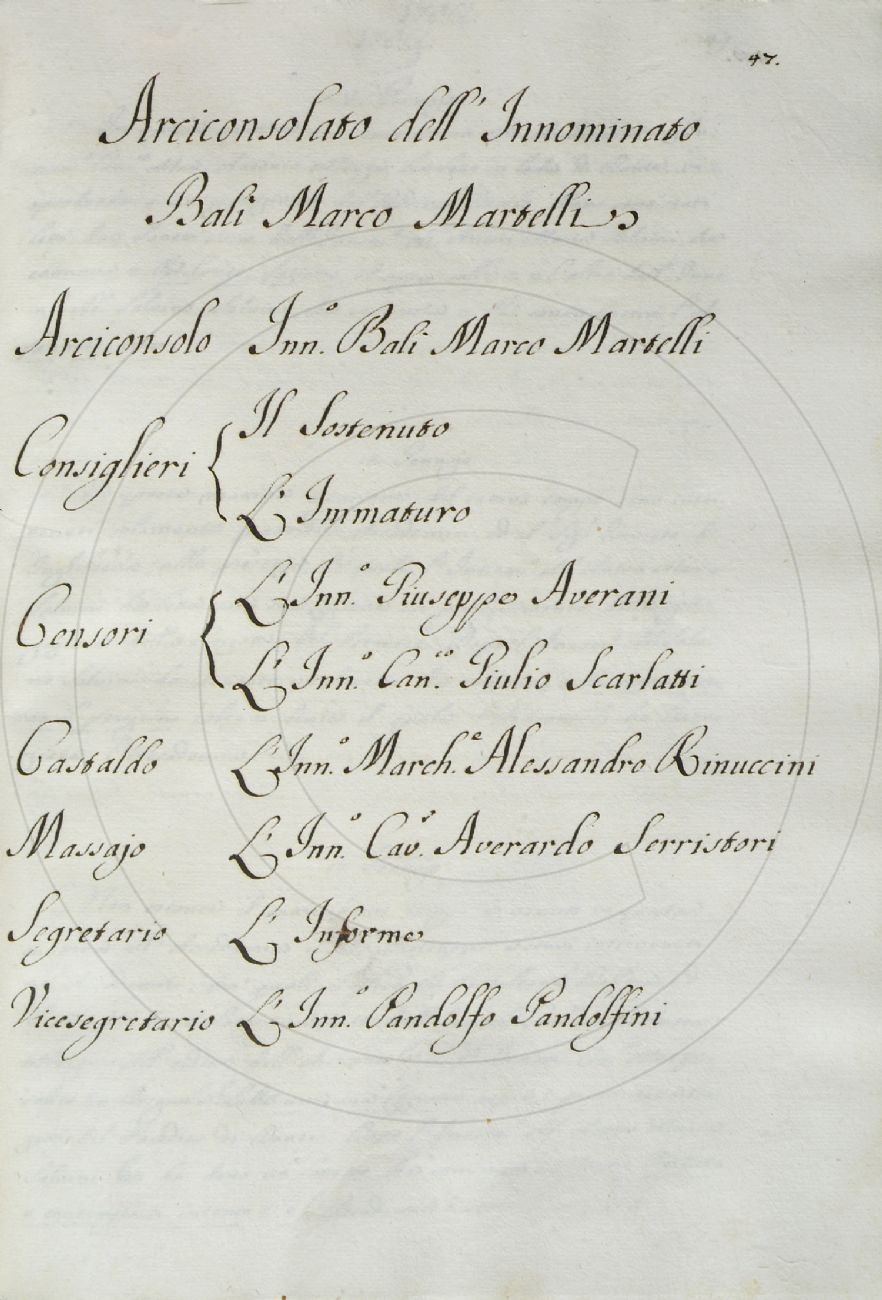 47.
Arciconsolato dell' Innominato
Balì Marco Martelli
Arciconsolo Inn.° Balì Marco Martelli
Consiglieri { Il Sostenuto
L' Immaturo
Censori { L' Inn.° Giuseppe Averani
L' Inn.° Can.co Giulio Scarlatti
Gastaldo L' Inn.° March.e Alessandro Rinuccini
Massajo L' Inn.° Cav.e Averardo Serristori
Segretario L' Informe
Vicesegretario L' Inn.° Pandolfo Pandolfini